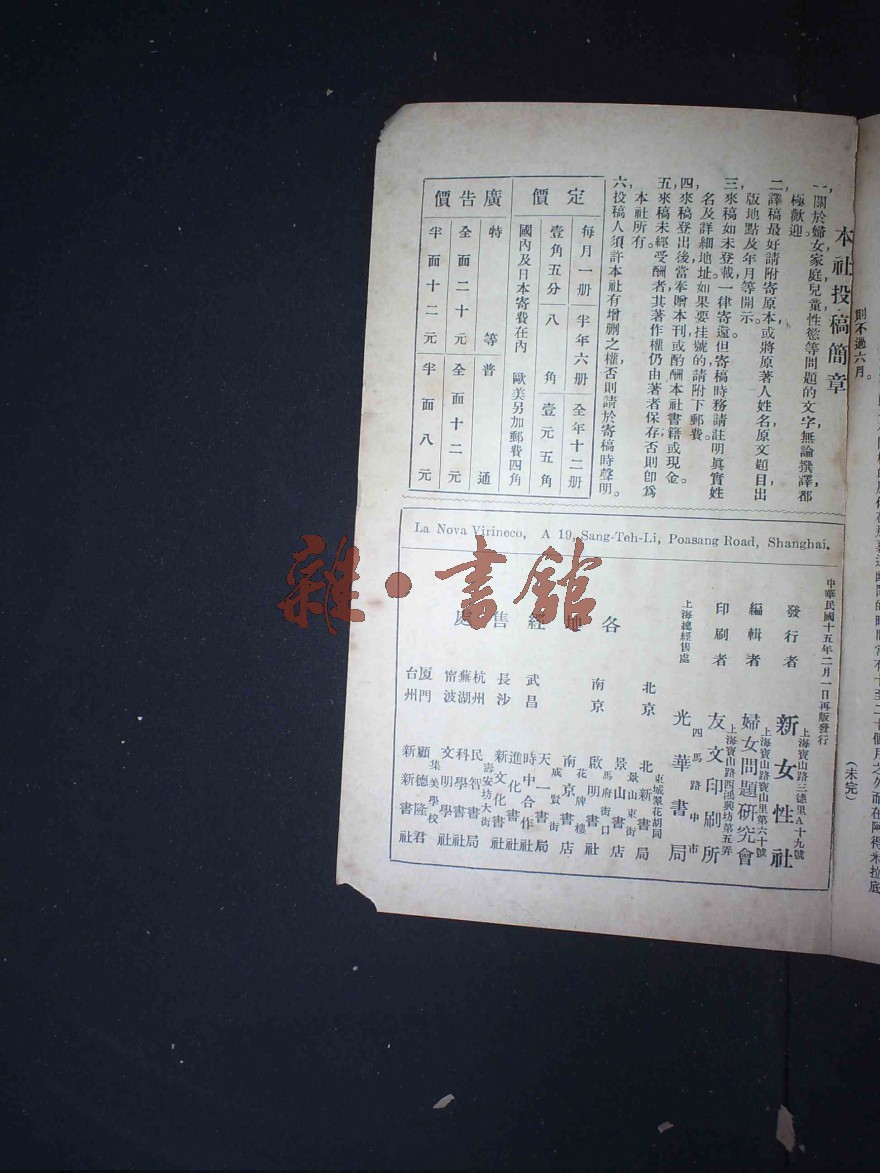 則不過六月。
(未完)
本社投稿簡章
一,關於婦女,家庭,兒童,性慾等問題的文字,無論撰譯,都
極歡迎。
二,譯稿最好請附寄原本,或將原著人姓名,原文題目,出
版地點及年月等開示。
三,來稿如未登載,一律寄還,但寄稿時務請註明眞實姓
名及詳細地址。如果要挂號的請附下郵費。
四,來稿登出後,當奉贈本刊,或酌酬本社書籍或現金。
五,來稿未經受酬者,其著作權仍由著者保存,否則卽爲
本社所有。
六,投稿人須許本社有增删之權,否則請於寄稿時聲明。
定價
每月一册 半年六册 全年十二册
壹角五分 八角 壹元五角
國內及日本寄費在內 歐美另加郵費四角
廣告價
特等 普通
全面二十元 全面十二元
半面十二元 半面八元
La Nova Virineco, A 19, Sang-Teh-Li, Poasang Road, Shanghai.
中華民國十五年二月一日再版發行
發行者 上海寶山路三德里A十九號 新女性社
編輯者 上海寶山路寶山里第六十號 婦女問題研究會
印刷者 上海寶山路西鴻興坊第五弄 友文印刷所
上海總經售處 四馬路中市 光華書局
各地經售處
北京 東城翠花胡同 北新書局
景山東街 景山書店
南京 馬府街口 啟明書社
花牌樓 南京書店
武昌 時中合作書局
長沙
杭州
蕪湖 科學圖書社
寗波
厦門 集美學校 顧德隆君
台州 新新書社
雜·書館